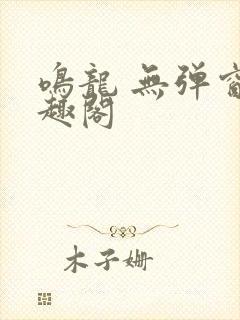 鳴龍 無弹窗
趣閣
木子姗